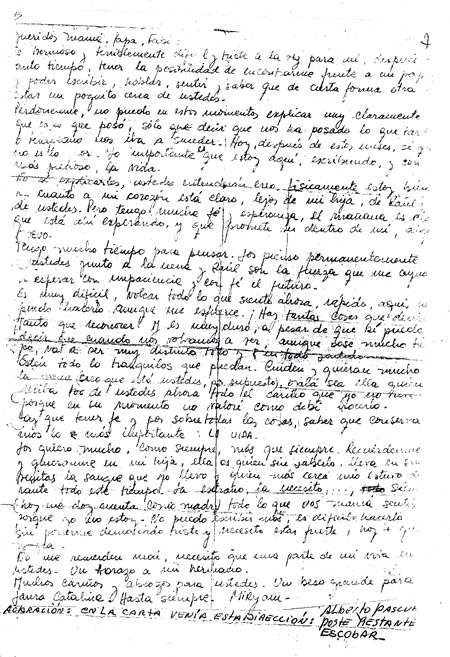 Queridos mamá, papá, Fabi:
hermoso, y terriblemente difícil y triste a la vez para mí, después
tanto tiempo, tener la posibilidad de encontrarme frente a un pap
y poder escribir, hablar, sentir, saber que de cierta forma otra
estar un poquito cerca de ustedes.
Perdónenme, no puedo en estos momentos explicar muy claramente
que es lo que pasó, sólo que decir que nos ha pasado lo que tar
o temprano nos iba a suceder. Hoy, después de estos meses, si
no es lo Lo importante es que estoy aquí, escribiendo, y con
más precioso, la vida.
No sé explicarlos, ustedes entenderán creo. Físicamente estoy bien
en cuanto a mi corazón está claro, lejos de mi hija, de Raúl
de ustedes. Pero tengo mucha fe y esperanza, el mañana es
que está ahí esperando, y que promete ser dentro de mí, al
nuevo.
Tengo mucho tiempo para pensar. Los pienso permanentemente
Ustedes junto a la nena y Raúl son la fuerza que me ayuda
a esperar con impaciencia y con fe el futuro.
Es muy difícil, volcar todo lo que siento ahora, rápido, aquí, no
puedo hacerlo aunque me esfuerce. ¡Hay tantas cosas que decir
Tanto que reconocer! Y es muy duro, a pesar de que sé puedo
decir que cuando nos volvamos a ver, aunque pase mucho ti
po, va a ser muy distinto todo y
Estén todo lo tranquilos que puedan. Cuiden y quieran mucho
la nena (creo que está ustedes, por supuesto), ojalá sea ella quien
reciba todo de ustedes ahora todo el cariño que yo no
porque en su momento no valoré como debí hacerlo.
Hay que tener fe y por sobre todas las cosas, saber que conserva
mos lo más importante: la VIDA.
Los quiero mucho, como siempre, más que siempre. Recuérdenme
y quiéranme en mi hija, ella es quien sin saberlo lleva en su
venitas la sangre que yo llevo y quien más cerca mío estuvo du
rante todo este tiempo. La extraño, la necesito,
hoy me doy cuenta (como madre) todo lo que vos mamá sentís
porque no estoy. No puedo escribir más, es difícil hacerlo
sin ponerme demasiado triste y necesito estar fuerte, hoy +
nunca.
No me recuerden mal, necesito que una parte de mi viva en
ustedes. Un abrazo a mi hermano.
Muchos cariños, abrazos para ustedes. Un beso grande para
Laura Catalina. Hasta siempre. Miryam.
ACLARACION: EN LA CARTA VENIA ESTA DIRECCION:
ALBERTO PASCU
POSTE RESTANTE
ESCOBAR